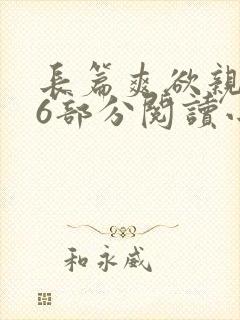 長篇爽欲親
6部分閱讀
和永威